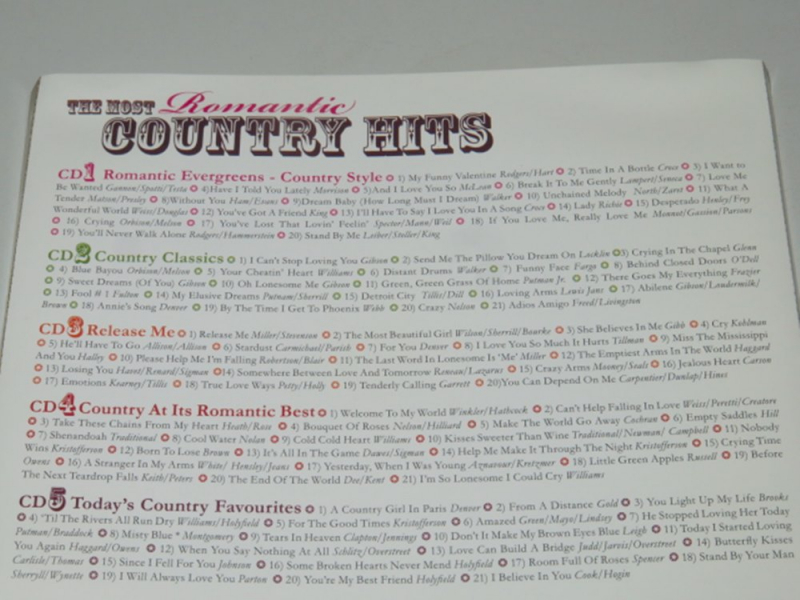 THE MOST Romantic
COUNTRY HITS
CD1 Romantic Evergreens - Country Style 1) My Funny Valentine Rodgers/Hart 2) Time In A Bottle Croce 3) I Want to
Be Wanted Gannon/Spotti/Testa 4)Have I Told You Lately Morrison 5)And I Love You So McLean 6) Break It To Me Gently Lampert/Seneca 7) Love Me
Tender Matson/Presley 8)Without You Ham/Evans 9)Dream Baby (How Long Must I Dream) Walker 10) Unchained Melody North/Zaret 11) What A
Wonderful World Weiss/Douglas 12) You've Got A Friend King 13) I'll Have To Say I Love You In A Song Croce 14) Lady Richie 15) Desperado Henley/Frey
16) Crying Orbison/Melson 17) You've Lost That Lovin' Feelin' Spector/Mann/Weil 18) If You Love Me, Really Love Me Monnot/Gassion/Parsons
19) You'll Never Walk Alone Rodgers/Hammerstein 20) Stand By Me Leiber/Stoller/King
CD2 Country Classics 1) I Can't Stop Loving You Gibson 2) Send Me The Pillow You Dream On Locklin 3) Crying In The Chapel Glenn
4) Blue Bayou Orbison/Melson 5) Your Cheatin' Heart Williams 6) Distant Drums Walker 7) Funny Face Fargo 8) Behind Closed Doors O'Dell
9) Sweet Dreams (Of You) Gibson 10) Oh Lonesome Me Gibson 11) Green, Green Grass Of Home Putman Jr. 12) There Goes My Everything Frazier
13) Fool # 1 Fulton 14) My Elusive Dreams Putnam/Sherrill 15) Detroit City Tillis/Dill 16) Loving Arms Lewis Jans 17) Abilene Gibson/Loudermilk/
Brown 18) Annie's Song Denver 19) By The Time I Get To Phoenix Webb 20) Crazy Nelson 21) Adios Amigo Freed/Livingston
CD3 Release Me 1) Release Me Miller/Stevenson 2) The Most Beautiful Girl Wilson/Sherrill/Bourke 3) She Believes In Me Gibb 4) Cry Kohlman
5) He'll Have To Go Allison/Allison 6) Stardust Carmichael/Parish 7) For You Denver 8) I Love You So Much It Hurts Tillman 9) Miss The Mississippi
And You Halley 10) Please Help Me I'm Falling Robertson/Blair 11) The Last Word In Lonesome Is 'Me' Miller 12) The Emptiest Arms In The World Haggard
13) Losing You Havet/Renard/Sigman 14) Somewhere Between Love And Tomorrow Reneau/Lazaros 15) Crazy Arms Mooney/Seals 16) Jealous Heart Carson
17) Emotions Kearney/Tillis 18) True Love Ways Petty/Holly 19) Tenderly Calling Garrett 20)You Can Depend On Me Carpentier/Dunlap/Hines
CD4 Country At Its Romantic Best 1) Welcome To My World Winkler/Hathcock 2) Can't Help Falling In Love Weiss/Peretti/Creatore
3) Take These Chains From My Heart Heath/Rose 4) Bouquet Of Roses Nelson/Hilliard 5) Make The World Go Away Cochran 6) Empty Saddles Hill
7) Shenandoah Traditional 8) Cool Water Nolan 9) Cold Cold Heart Williams 10) Kisses Sweeter Than Wine Traditional/Newman/ Campbell 11) Nobody
Wins Kristofferson 12) Born To Lose Brown 13) It's All In The Game Dawes/Sigman 14) Help Me Make It Through The Night Kristofferson 15) Crying Time
Owens 16) A Stranger In My Arms White/ Hensley/Jeans 17) Yesterday, When I Was Young Aznavour/Kretzmer 18) Little Green Apples Russell 19) Before
The Next Teardrop Falls Keith/Peters 20) The End Of The World Dee/Kent 21) I'm So Lonesome I Could Cry Williams
CD5 Today's Country Favourites 1) A Country Girl In Paris Denver 2) From A Distance Gold 3) You Light Up My Life Brooks
4) 'Til The Rivers All Run Dry Williams/Holyfield 5) For The Good Times Kristofferson 6) Amazed Green/Mayo/Lindsey 7) He Stopped Loving Her Today
Putman/Braddock 8) Misty Blue * Montgomery 9) Tears In Heaven Clapton/Jennings 10) Don't It Make My Brown Eyes Blue Leigh 11) Today I Started Loving
You Again Haggard/Owens 12) When You Say Nothing At All Schlitz/Overstreet 13) Love Can Build A Bridge Judd/Jarvis/Overstreet 14) Butterfly Kisses
Carlisle/Thomas 15) Since I Fell For You Johnson 16) Some Broken Hearts Never Mend Holyfield 17) Room Full Of Roses Spencer 18) Stand By Your Man
Sherryll/Wynette 19) I Will Always Love You Parton 20) You're My Best Friend Holyfield 21) I Believe In You Cook/Hogin